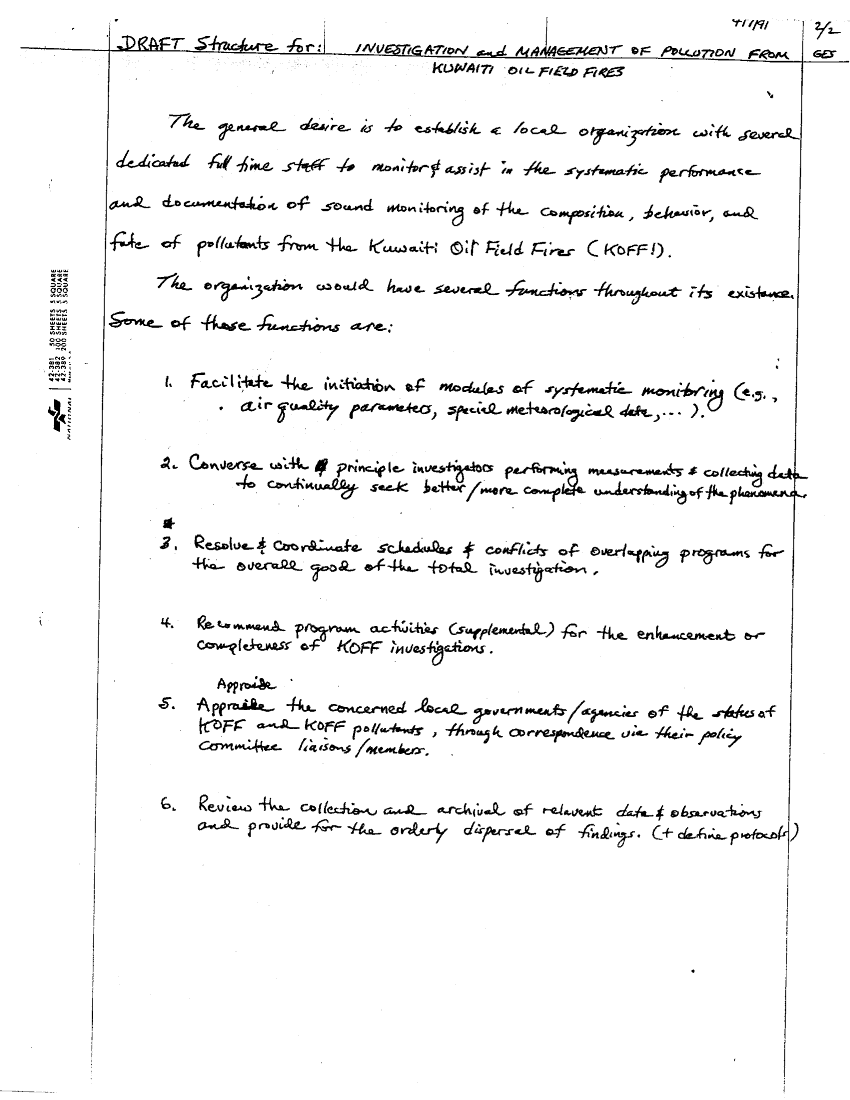 4/1/91
2/2
DRAFT Structure for: INVESTIGATION and MANAGEMENT OF POLLUTION FROM
GES
KUWAITI OIL FIELD FIRES
The general desire is to establish a local organization with several
dedicated full time staff to monitor & assist in the systematic performance
and documentation of sound monitoring of the composition, behavior, and
fate of pollutants from the Kuwaiti Oil Field Fires (KOFF!).
The organization would have several functions throughout its existence.
Some of those functions are:
1. Facilitate the initiation of modules of systematic monitoring (e.g.,
air quality parameters, special meteorological data, ... ).
2. Converse with principle investigators performing measurements & collecting data
to continually seek better/more complete understanding of the phenomena.
3. Resolve & coordinate schedules & conflicts of overlapping programs for
the overall good of the total investigation.
4. Recommend program activities (supplemental) for the enhancement or
completeness of KOFF investigations.
Appraise
5. Appraise the concerned local governments/agencies of the status of
KOFF and KOFF pollutants, through correspondence via their policy
committee liaisons/members.
6. Review the collection and archival of relavent data & observations
and provide for the orderly dispersal of findings. (+ define protocols)
42-381 50 SHEETS 5 SQUARE
42-382 100 SHEETS 5 SQUARE
42-389 200 SHEETS 5 SQUARE
NATIONAL